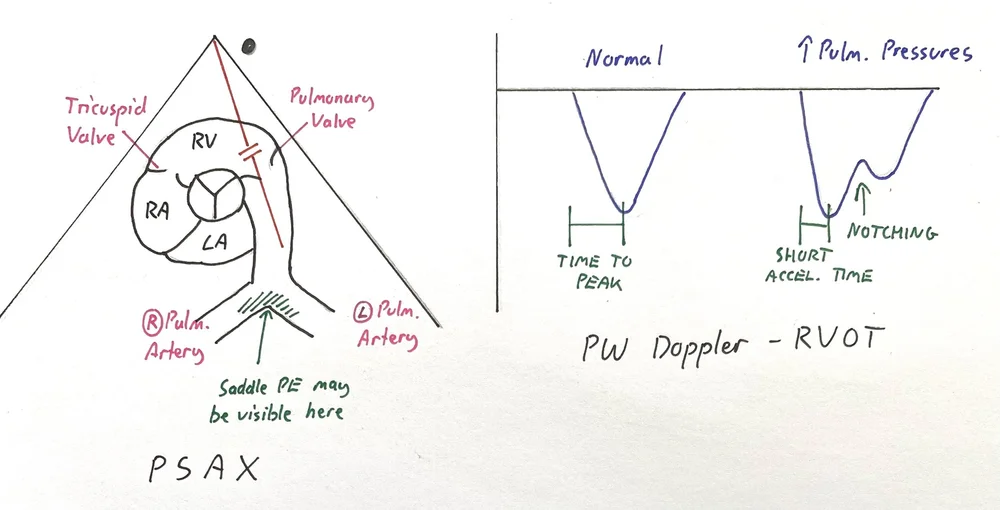 Tricuspid
Valve
Pulmonary
Valve
RV
RA
LA
Ⓡ Pulm.
Artery
Ⓛ Pulm.
Artery
Saddle PE may
be visible here
PSAX
Normal
↑ Pulm. Pressures
TIME TO
PEAK
SHORT
ACCEL. TIME
NOTCHING
PW Doppler - RVOT